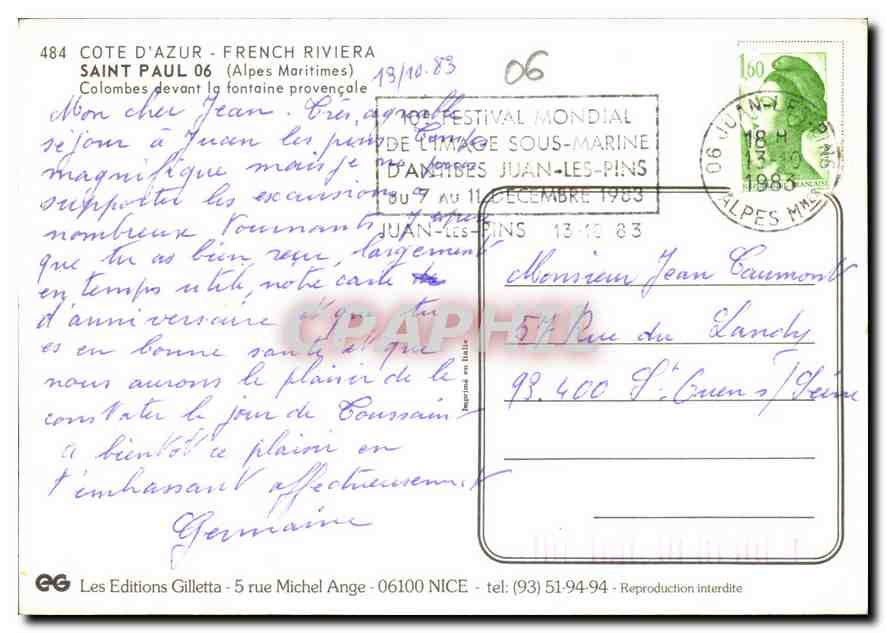 484 COTE D'AZUR - FRENCH RIVIERA
SAINT PAUL 06 (Alpes Maritimes)
Colombes devant la fontaine provençale
13/10.83
06
1,60
10e FESTIVAL MONDIAL
DE L'IMAGE SOUS-MARINE
D'ANTIBES JUAN-LES-PINS
DU 7 AU 11 DECEMBRE 1983
JUAN-LES-PINS 13-10 83
06 JUAN-LES-PINS
18 H
13-10
1983
ALPES MMES
Mon cher Jean. Très agréable
séjour à Juan les pins. Temps
magnifique mais je ne peux
supporter les excursions à
nombreux tournants. J'espère
que tu as bien reçu, largement
en temps utile, notre carte
d'anniversaire et que tu
es en bonne santé et que
nous aurons le plaisir de le
constater le jour de Toussaint
à bientôt ce plaisir en
t'embrassant affectueusement
Germaine
Monsieur Jean Caumont
57 Rue du Landy
93.400 St. Ouen s/Seine
CPAPHIL
Imprimé en Italie
EG Les Editions Gilletta - 5 rue Michel Ange - 06100 NICE - tel: (93) 51-94-94 - Reproduction interdite